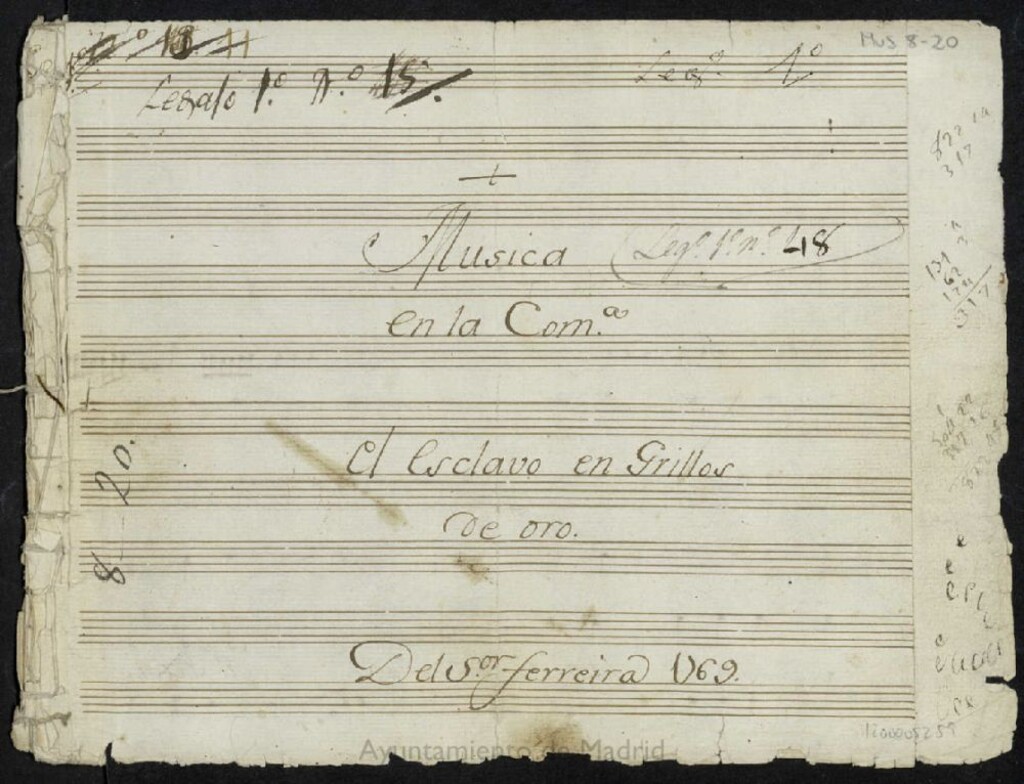 Nº 13. 11
Mus 8-20
Legajo 1.º N.º 15.
Leg.º 1.º
Musica
Leg.º 1.º n.º 48
en la Com.ª
El Esclavo en Grillos
De oro.
Del S.or ferreira 1769.
8 20.
822
317
317
1200005259
Ayuntamiento de Madrid